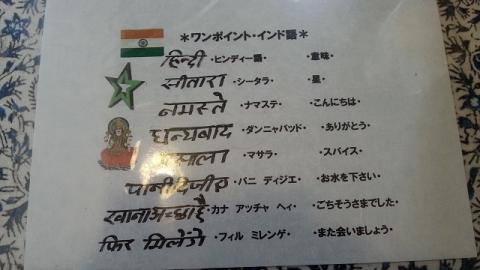 ＊ワンポイント・インド語＊
हिन्दी ・ヒンディー語 ・意味・
सीतारा ・シータラ・ ・星・
नमस्ते ・ナマステ・ ・こんにちは・
धन्यबाद ・ダンニャバッド・ ・ありがとう・
मसाला ・マサラ・ ・スパイス・
पानी दिजीए ・パニ ディジエ・ ・お水を下さい・
खाना अच्छा है ・カナ アッチャ ヘィ・ ・ごちそうさまでした・
फिर मिलेंगे ・フィル ミレンゲ・ ・また会いましょう・